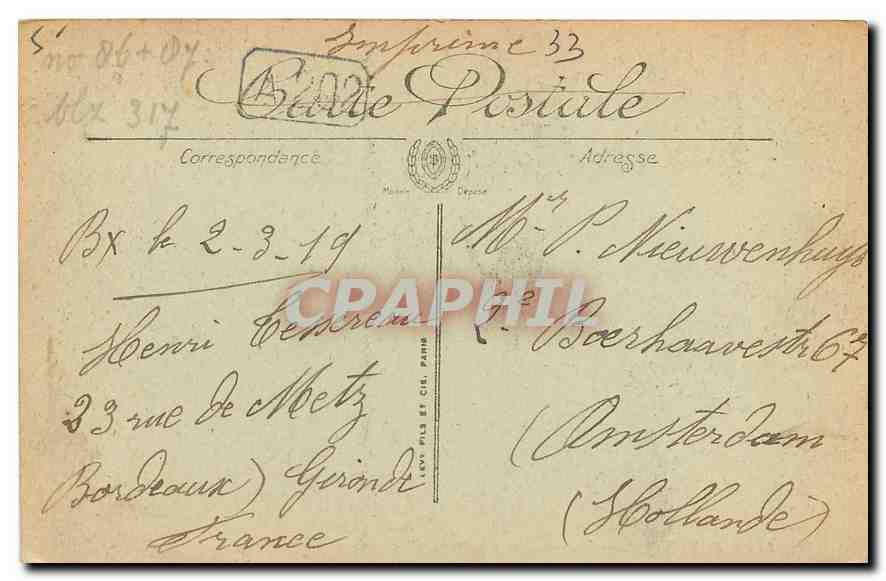 Imprimé 33
no 86 + 87
blx 317
A 202
Carte Postale
Correspondance
Adresse
Modèle Déposé
Bx le 2-3-19
Henri Tessereau
23 rue de Metz
Bordeaux) Gironde
France
LEVY FILS ET CIE, PARIS
Mr P. Nieuwenhuys
2e Boerhaavestr 67
(Amsterdam
(Hollande)
CPAPHIL